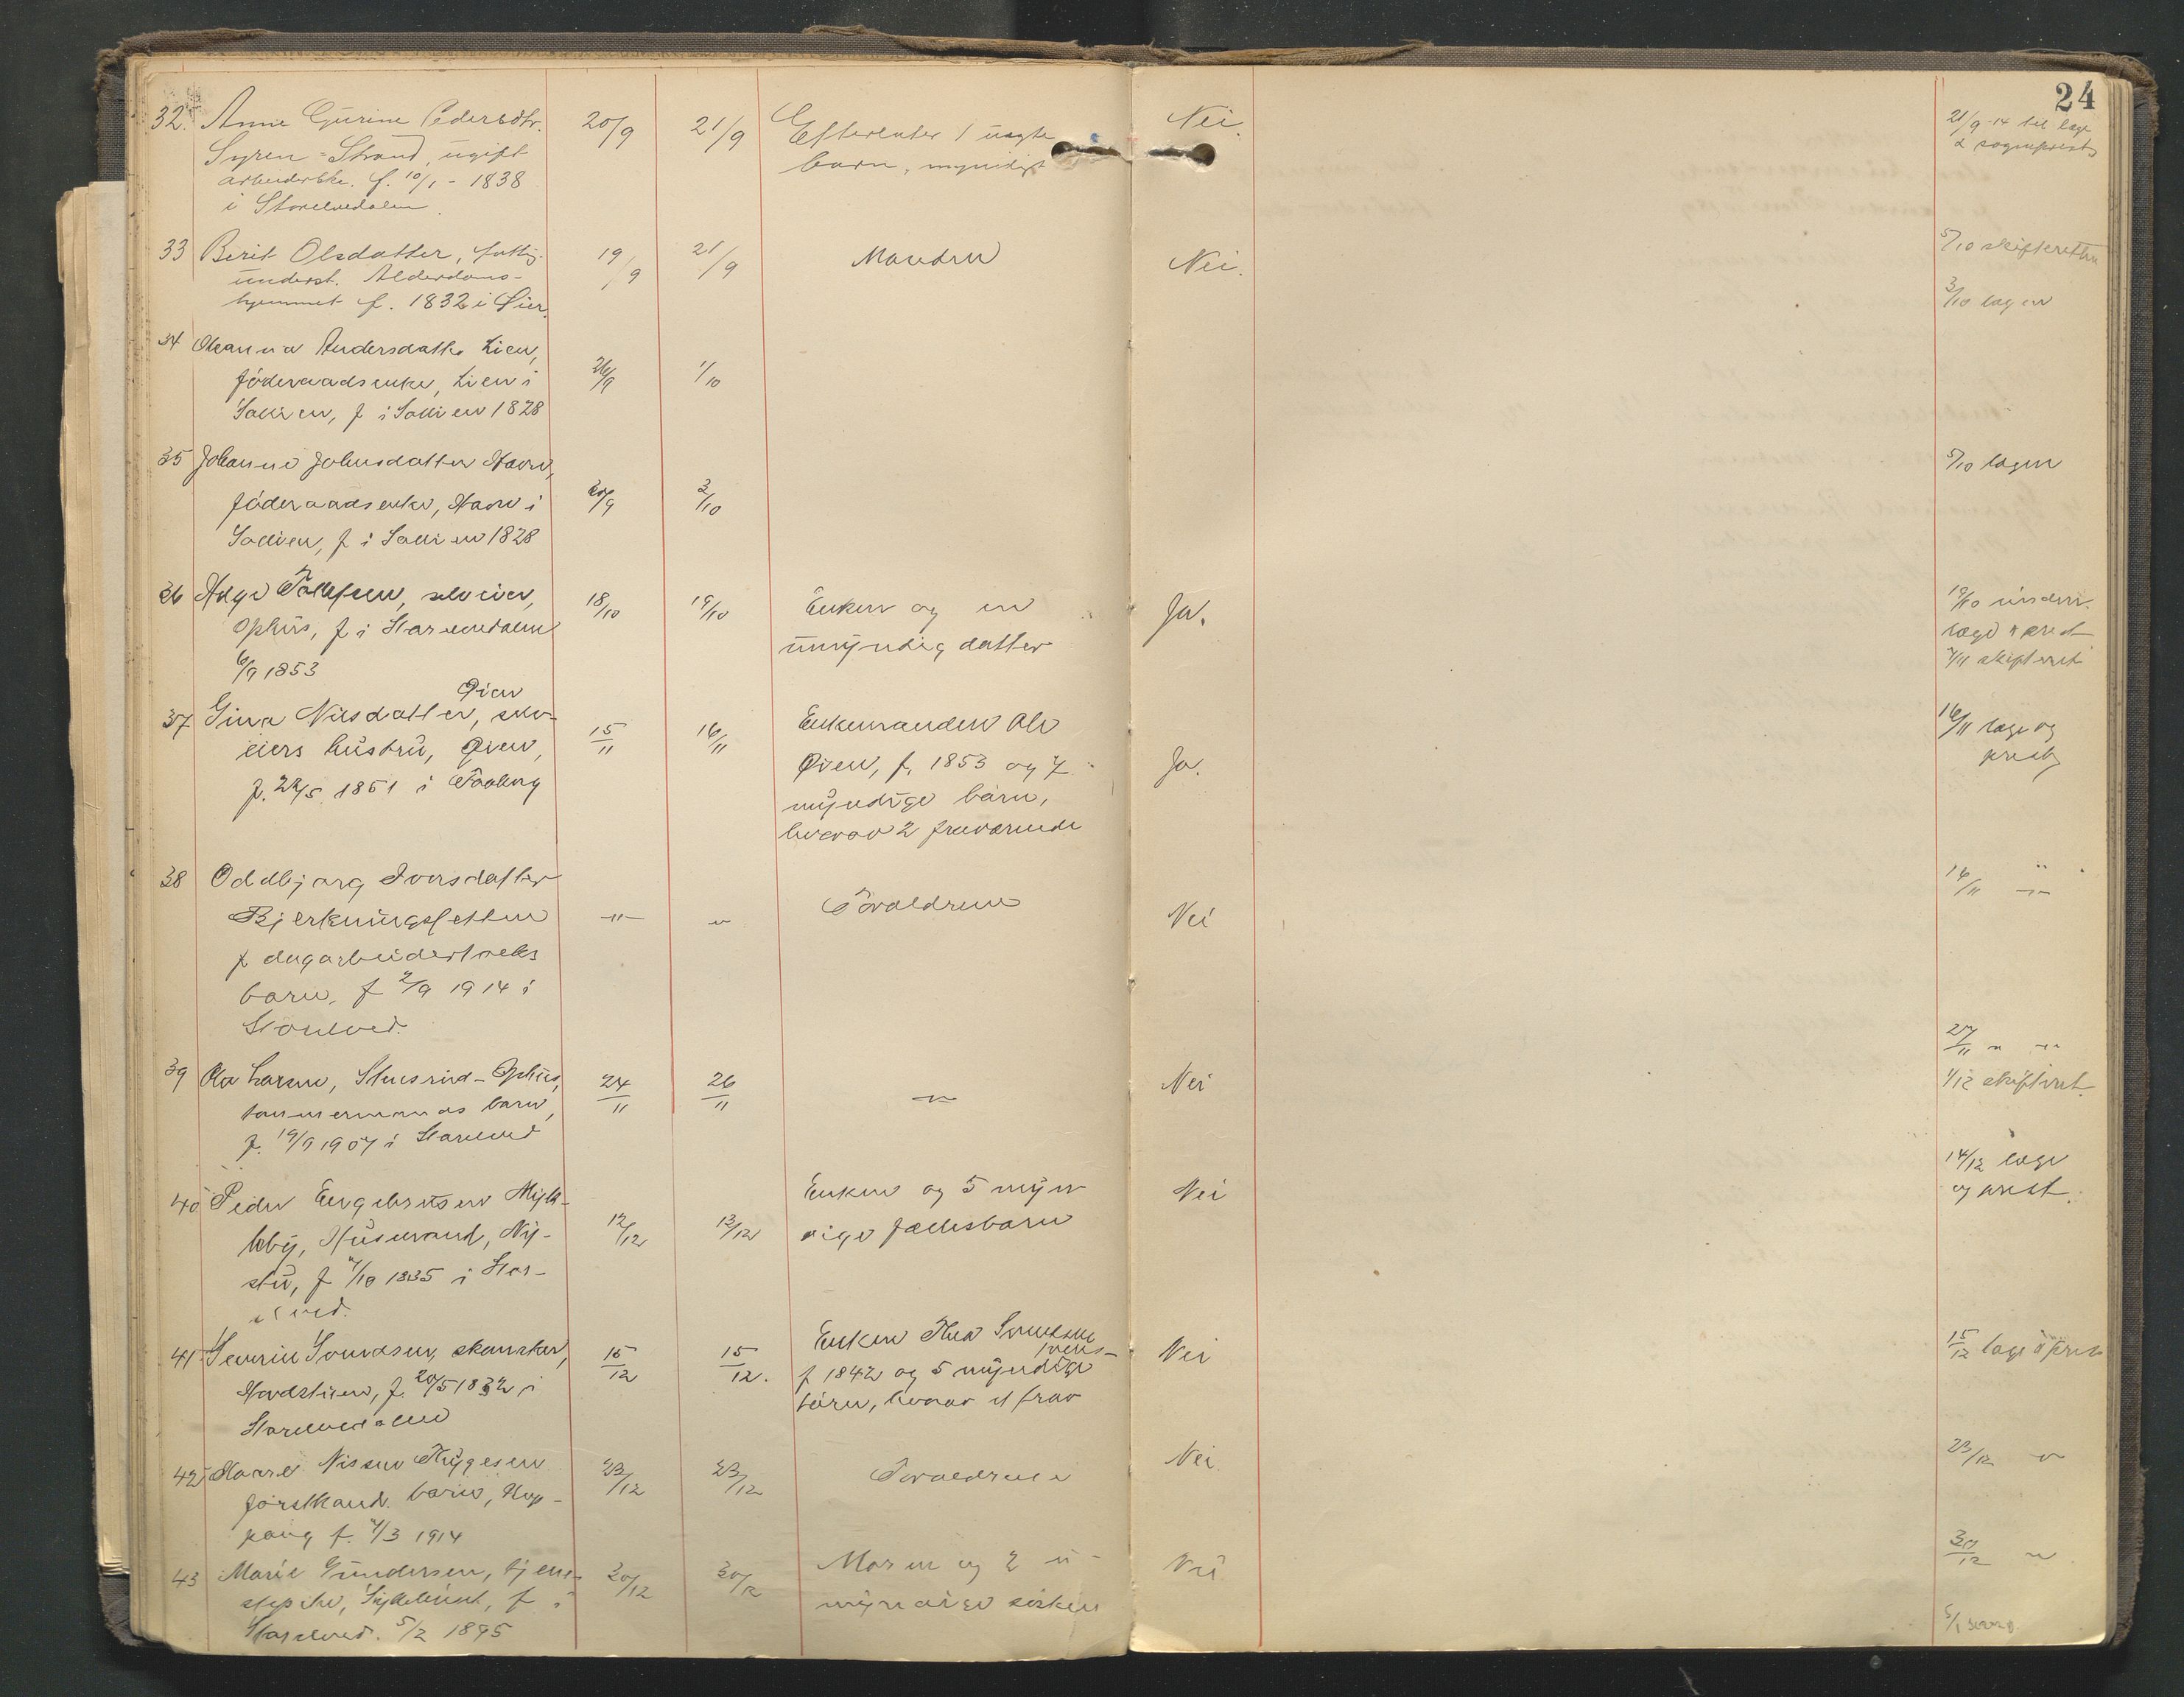 24
32. Anne Gurine Pedersdtr.
Syren-Strand, ugift
arbeiderske. f. 10/1 - 1838
i Storelvedalen.
20/9
21/9
Efterlater 1 uegte
barn, myndigt
Nei.
21/9-14 til læge
& sogneprest
33 Berit Olsdatter, fattig-
underst. Alderdoms-
hjemmet f. 1832 i Lier.
19/9
21/9
Manden
Nei.
5/10 skifteretten
3/10 lagen
34 Oleanna Andersdatter Lien,
föderaadsenke, Lien i
Sollien, f i Sollien 1828
26/9
1/10
35 Johanne Johnsdatter
föderaadsenke, i
Sollien, f i Sollien 1828
2/10
5/10 lagen
36 Helge Tollefsen, selveier,
Ophus, f i Storelvedalen
6/9 1853
18/10
19/10
Enken og en
umyndig datter
Ja.
19/10
læge & prest
7/11 skifteret
37 Gina Nilsdatter Øien, selv-
eiers hustru, Øien,
f. 22/5 1851 i Faaberg
15/11
16/11
Enkemanden Ole
Øien, f. 1853 og 7
myndige børn,
hvorav 2 fraværende
Ja.
16/11 læge og
prest
38 Oddbjørg Iversdatter
Bjerkningsletten
dagarbeiderfolks
barn, f 2/9 1914 i
Storelved.
-"-
"
Forældrene
Nei
16/11 -"-
39 Ola Larsen, Stuesrud-Ophus,
tømmermands barn,
f. 19/9 1907 i Storelved
24/11
26/11
-"-
Nei
27/11 " -"-
1/12 skifteret.
40 Peder Engebretsen Mykle-
by, Husmand, Ny-
stu, f 7/10 1835 i Stor-
elved.
12/12
13/12
Enken og 5 myn-
dige fællesbarn
Nei
14/12 læge
og prest.
41 Severin Simensen, skomaker,
f. 20/5 1832 i
Storelvedalen
15/12
15/12.
Enken Thea
f 1842 og 5 myndige
børn, hvorav et frav
Nei
15/12 læge & prest
42 Haarel Nissen Thygesen
forstkand. barn, Kop-
pang f. 4/3 1914
23/12
23/12
Forældrene
Nei.
23/12 "
43 Marie Gundersen, tjene-
stepike, f i
Storelved. 5/2 1895
30/12
30/12
Moren og 2 u-
myndige søsken
Nei
30/12 "